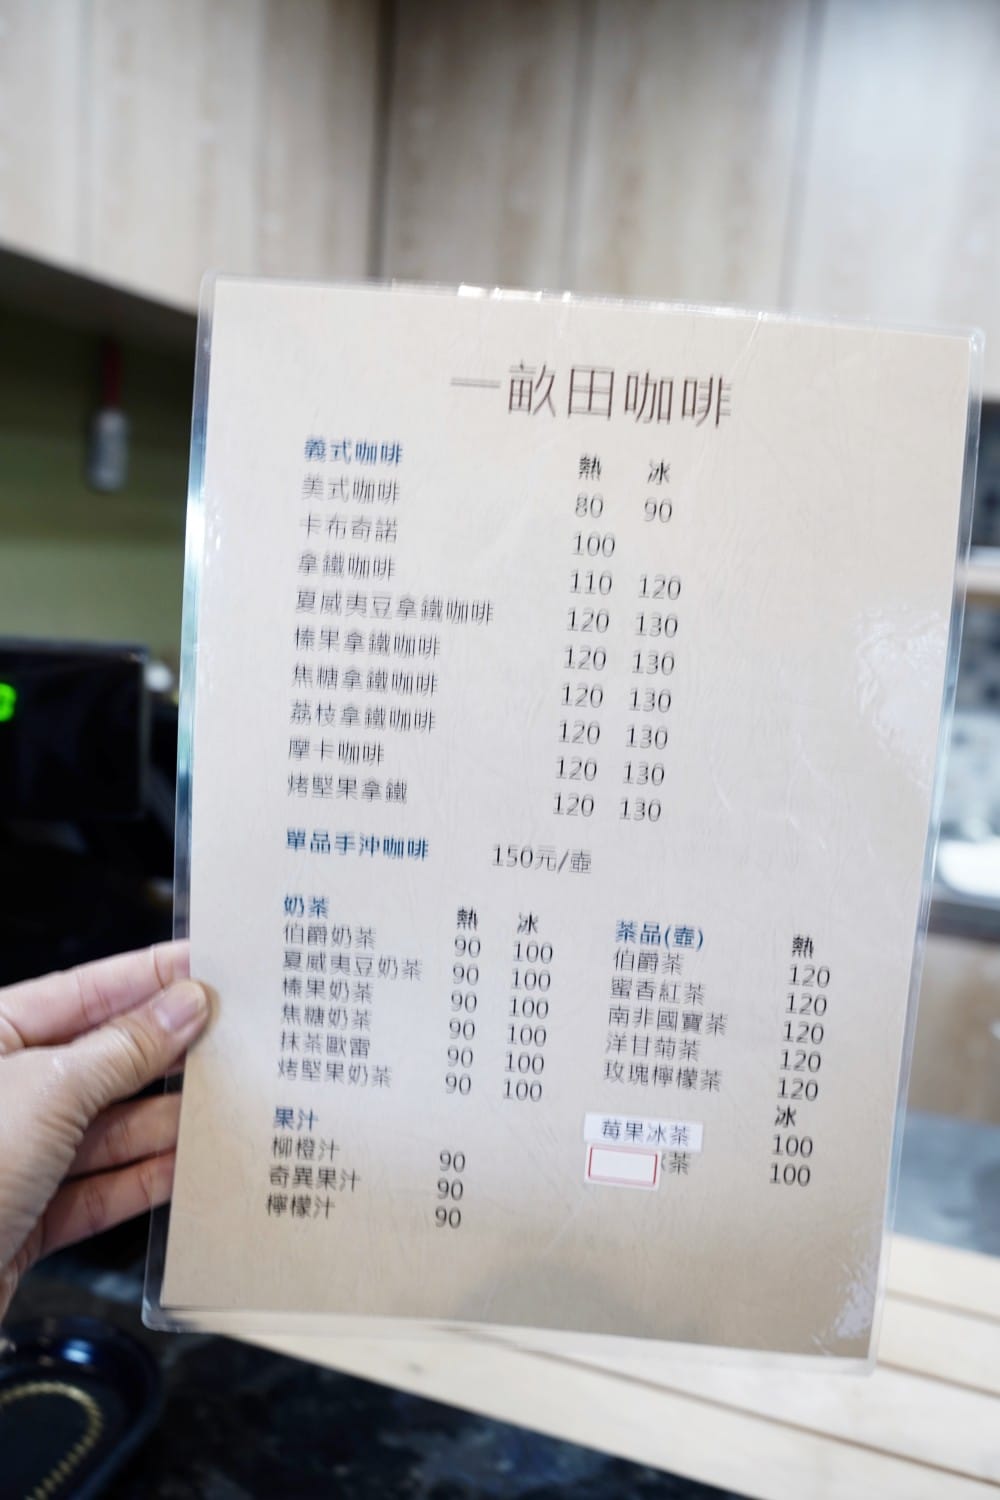 一畝田咖啡
義式咖啡 熱 冰
美式咖啡 80 90
卡布奇諾 100
拿鐵咖啡 110 120
夏威夷豆拿鐵咖啡 120 130
榛果拿鐵咖啡 120 130
焦糖拿鐵咖啡 120 130
荔枝拿鐵咖啡 120 130
摩卡咖啡 120 130
烤堅果拿鐵 120 130
單品手沖咖啡 150元/壺
奶茶 熱 冰
伯爵奶茶 90 100
夏威夷豆奶茶 90 100
榛果奶茶 90 100
焦糖奶茶 90 100
抹茶歐雷 90 100
烤堅果奶茶 90 100
果汁
柳橙汁 90
奇異果汁 90
檸檬汁 90
茶品(壺) 熱
伯爵茶 120
蜜香紅茶 120
南非國寶茶 120
洋甘菊茶 120
玫瑰檸檬茶 120
冰
莓果冰茶 100
茶 100